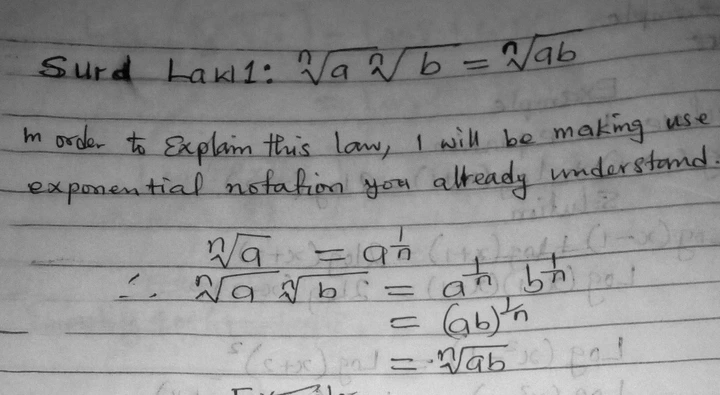 Surd Law 1: ⁿ√a ⁿ√b = ⁿ√ab
In order to Explain this law, I will be making use
exponential notation you already understand.
ⁿ√a = a^(1/n)
∴ ⁿ√a ⁿ√b = a^(1/n) b^(1/n)
= (ab)^(1/n)
= ⁿ√ab